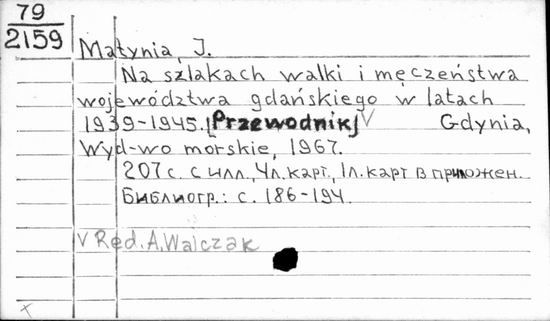 79
2159
Matynia, J.
Na szlakach walki i męczeństwa
województwa gdańskiego w latach
1939-1945. [Przewodnik] V Gdynia,
Wyd-wo morskie, 1967.
207 с. с илл., 4 л. карт., 1 л. карт в приложен.
Библиогр.: с. 186-194.
V Red. A. Walczak